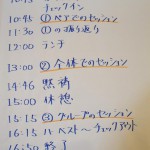 チェックイン
10:45 ①ペアでのセッション
11:30 ①の振り返り
12:00 ランチ
13:00 ②全体でのセッション
14:46 黙祷
15:00 休憩
15:15 ③グループのセッション
16:15 ハーベスト〜チェックアウト
16:50 終了